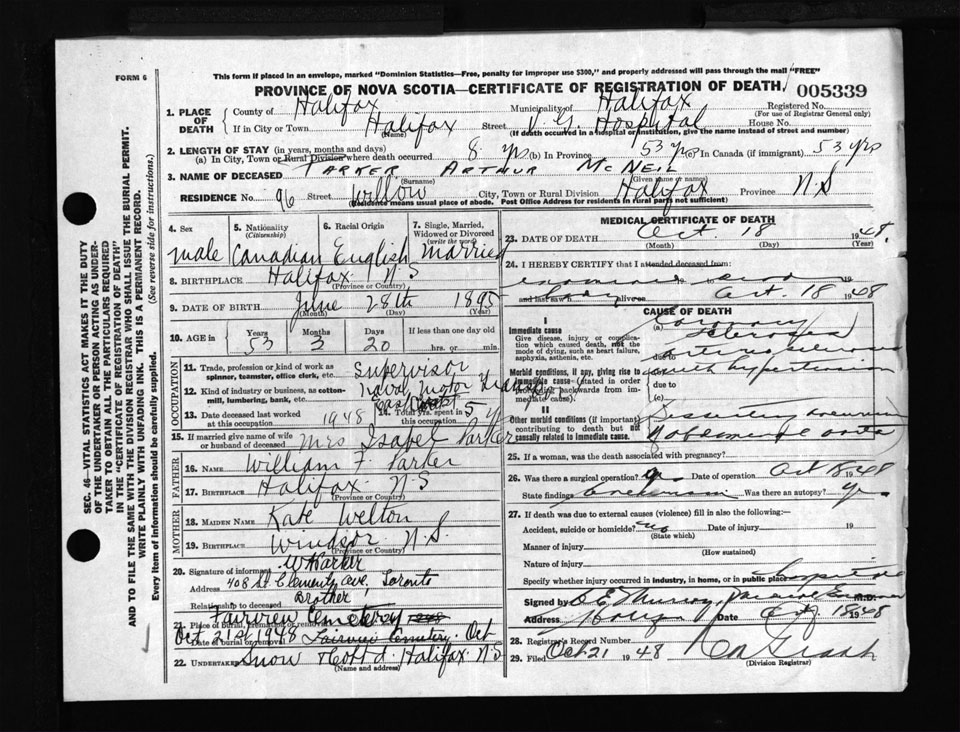 FORM 6
This form if placed in an envelope, marked "Dominion Statistics—Free, penalty for improper use $300," and properly addressed will pass through the mail "FREE"
PROVINCE OF NOVA SCOTIA—CERTIFICATE OF REGISTRATION OF DEATH. 005339
1. PLACE OF DEATH
County of Halifax Municipality of Halifax Registered No.
(For use of Registrar General only)
If in City or Town Halifax Street V. G. Hospital House No.
(Name) (If death occurred in a hospital or institution, give the name instead of street and number)
2. LENGTH OF STAY (in years, months and days)
(a) In City, Town or Rural Division where death occurred 8 yrs (b) In Province 53 yrs (c) In Canada (if immigrant) 53 yrs
3. NAME OF DECEASED PARKER ARTHUR MCNEIL
(Surname) (Given name or names)
RESIDENCE No. 96 Street Willow City, Town or Rural Division Halifax Province N.S
(Residence means usual place of abode. Post Office Address for residents in rural parts not sufficient)
4. Sex 5. Nationality (Citizenship) 6. Racial Origin 7. Single, Married, Widowed or Divorced (write the word)
male Canadian English Married
8. BIRTHPLACE Halifax N.S
(Province or Country)
9. DATE OF BIRTH June 28th 1895
(Month) (Day) (Year)
10. AGE in Years Months Days If less than one day old
53 3 20 hrs. or min.
OCCUPATION
11. Trade, profession or kind of work as spinner, teamster, office clerk, etc. Supervisor
12. Kind of industry or business, as cotton-mill, lumbering, bank, etc. Naval Motor East
13. Date deceased last worked at this occupation 1948 14. Total yrs. spent in this occupation 5 y
15. If married give name of wife or husband of deceased Mrs Isabel Parker
FATHER
16. NAME William F. Parker
17. BIRTHPLACE Halifax N.S
(Province or Country)
MOTHER
18. MAIDEN NAME Kate Welton
19. BIRTHPLACE Windsor N.S.
(Province or Country)
20. Signature of informant W Parker
Address 408 St Clements Ave, Toronto
Relationship to deceased Brother
21. Place of burial, cremation or removal Fairview Cemetery
Date of burial or removal Oct 21st 1948 Fairview Cemetery. Oct
22. Undertaker Snow & Co Ltd. Halifax N.S
(Name and address)
MEDICAL CERTIFICATE OF DEATH
23. DATE OF DEATH Oct. 18 1948.
(Month) (Day) (Year)
24. I HEREBY CERTIFY that I attended deceased from:
19
and last saw h alive on Oct. 18 1948
CAUSE OF DEATH
I
Immediate cause
Give disease, injury or complication which caused death, not the mode of dying, such as heart failure, asphyxia, asthenia, etc.
(a) Coronary Sclerosis
due to
Morbid conditions, if any, giving rise to immediate cause (stated in order proceeding backwards from immediate cause).
(b) with hypertension
due to
(c)
II
Other morbid conditions (if important) contributing to death but not causally related to immediate cause.
of
25. If a woman, was the death associated with pregnancy?
26. Was there a surgical operation? Date of operation Oct 1948
State findings Was there an autopsy? Yes
27. If death was due to external causes (violence) fill in also the following:—
Accident, suicide or homicide? no Date of injury 19
(State which)
Manner of injury
(How sustained)
Nature of injury
Specify whether injury occurred in industry, in home, or in public place
Signed by D. E. Murray, M.D.
Address Halifax Date Oct 18 1948
28. Registrar's Record Number
29. Filed Oct 21 1948
(Division Registrar)
SEC. 46—VITAL STATISTICS ACT MAKES IT THE DUTY
OF THE UNDERTAKER OR PERSON ACTING AS UNDER-
TAKER TO OBTAIN ALL THE PARTICULARS REQUIRED
IN THE "CERTIFICATE OF REGISTRATION OF DEATH"
AND TO FILE THE SAME WITH THE DIVISION REGISTRAR WHO SHALL ISSUE THE BURIAL PERMIT.
WRITE PLAINLY WITH UNFADING INK. THIS IS A PERMANENT RECORD.
Every item of information should be carefully supplied. (See reverse side for instructions.)